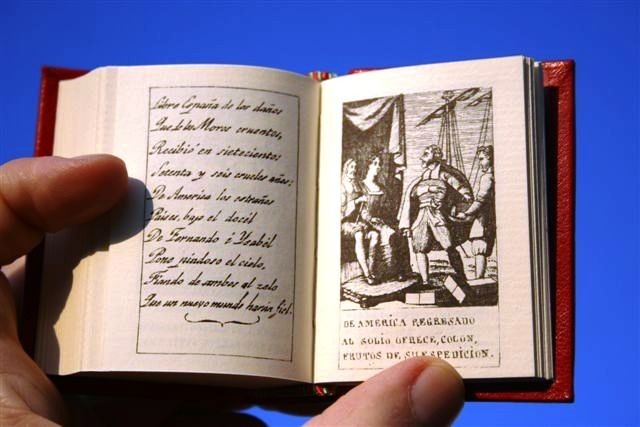 Libre España de los daños
Que de los Moros cruentos,
Recibió en setecientos
Setenta y seis crueles años;
De America los estraños
Paises, bajo el docél
De Fernando é Ysabél
Pone piadoso el cielo,
Fiando de ambos al zelo
Que un nuevo mundo harán fiel.
DE AMERICA REGRESADO
AL SOLIO OFRECE, COLON,
FRUTOS DE SU ESPEDICION.